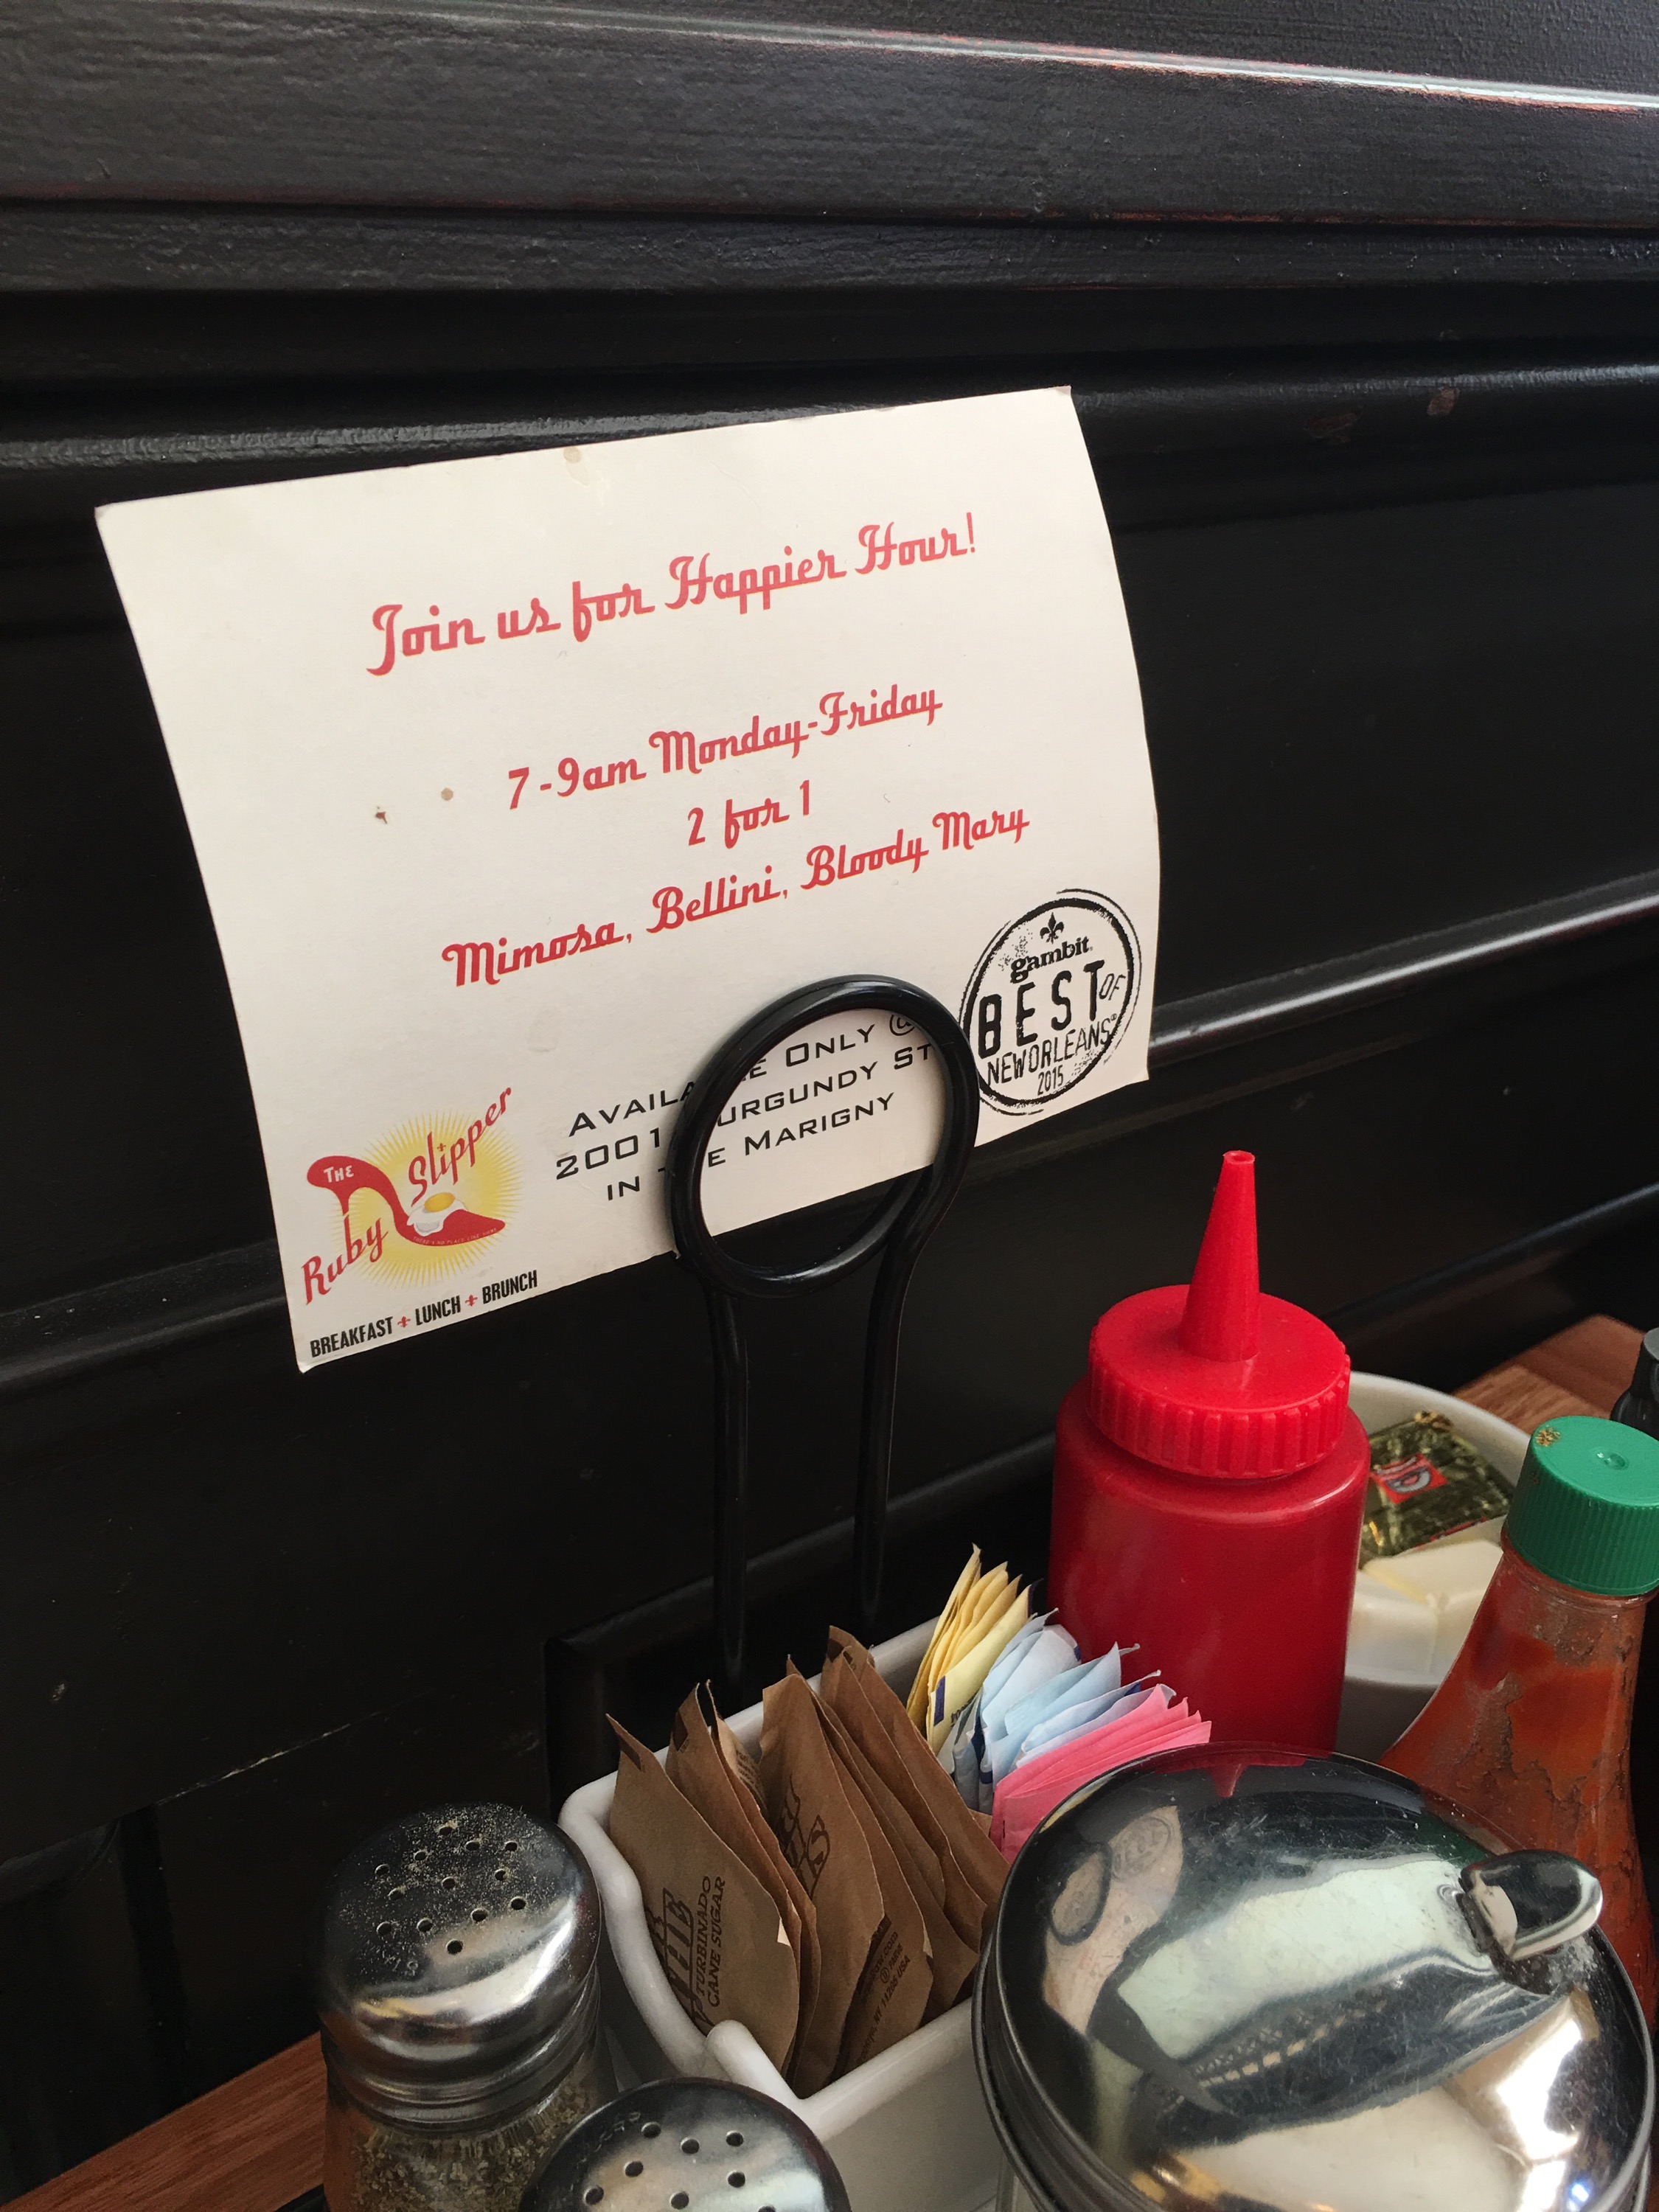 Join us for Happier Hour!
7-9am Monday-Friday
2 for 1
Mimosa, Bellini, Bloody Mary
gambit
BEST OF
NEW ORLEANS
2015
Only @
2001 St
in Marigny
The
Ruby Slipper
BREAKFAST + LUNCH + BRUNCH
TURBINADO
CANE SUGAR